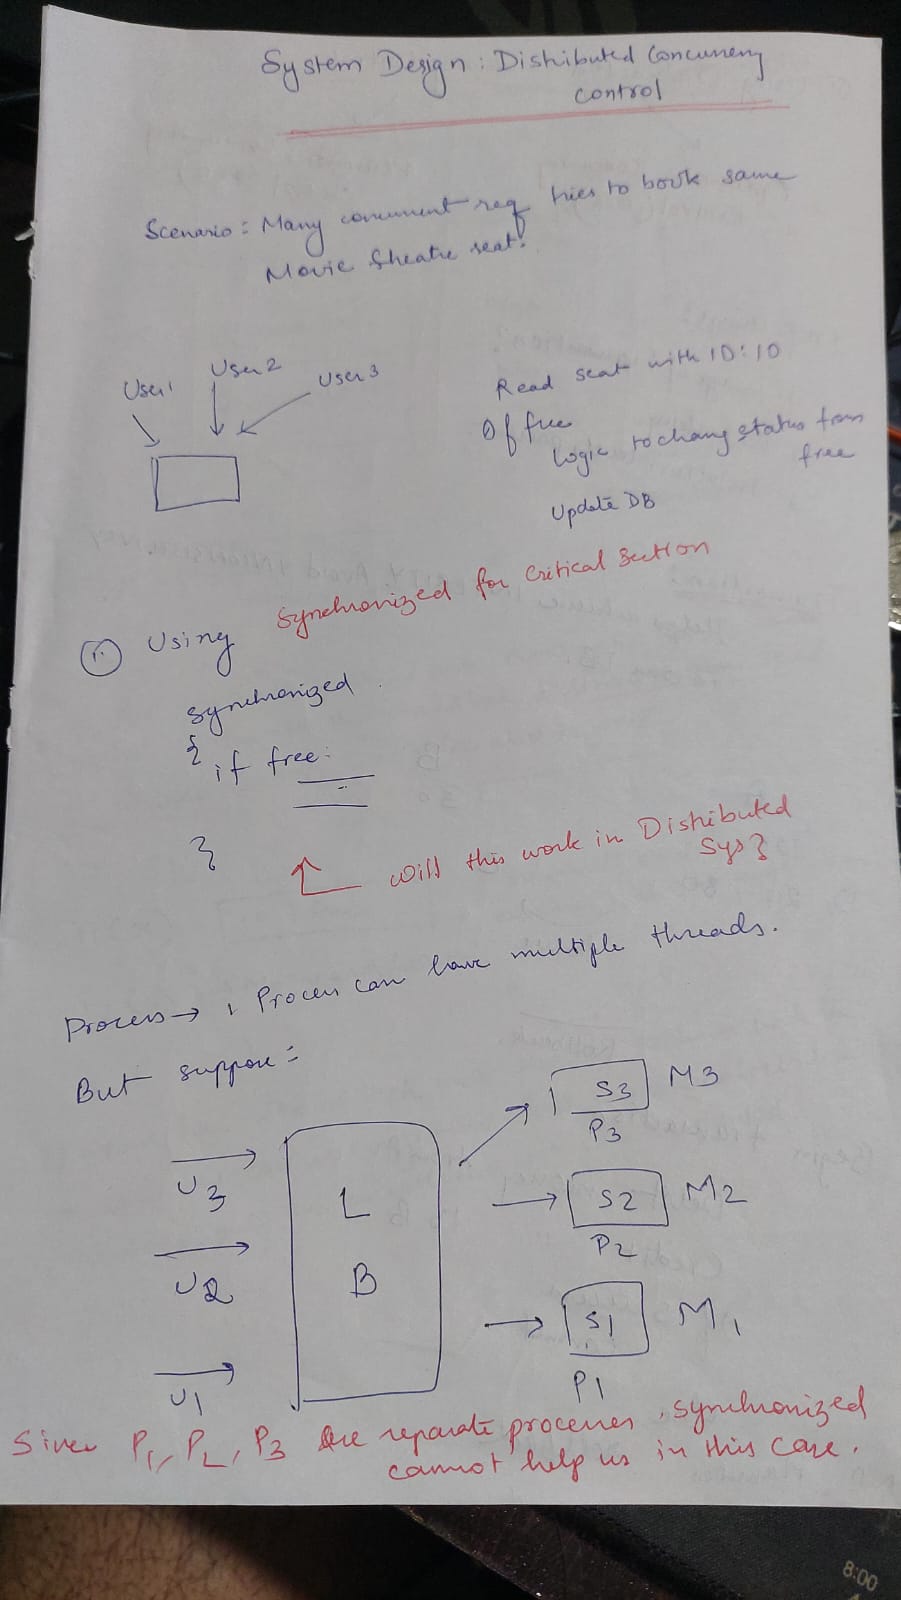 System Design: Distributed Concurreny
control
Scenario: Many concurrent req tries to book same
Movie theatre seat.
User1
User2
User3
Read seat with ID:10
If free
logic to chang status from
free
Update DB
1. Using Synchronized for Critical Section
synchronized
{
if free:
}
Will this work in Distributed
Sys?
Process → 1 Process can have multiple threads.
But suppose:
S3 M3
P3
U3
L
S2 M2
P2
U2
B
S1 M1
P1
U1
Since P1, P2, P3 are separate processes, synchronized
cannot help us in this case.
8:00